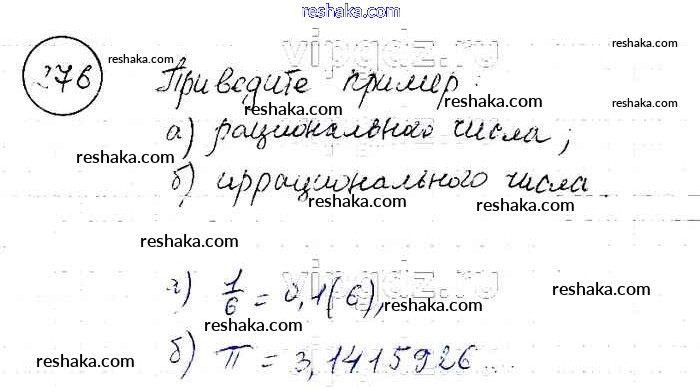 reshaka.com
vipgdz.ru
276 reshaka.com Приведите пример: reshaka.com
reshaka.com а) рационального числа;
reshaka.com
б) иррационального числа.
reshaka.com reshaka.com
reshaka.com
vipgdz.ru
а) 1/6 = 0,1(6), reshaka.com
reshaka.com
б) π = 3,1415926...
reshaka.com reshaka.com
reshaka.com